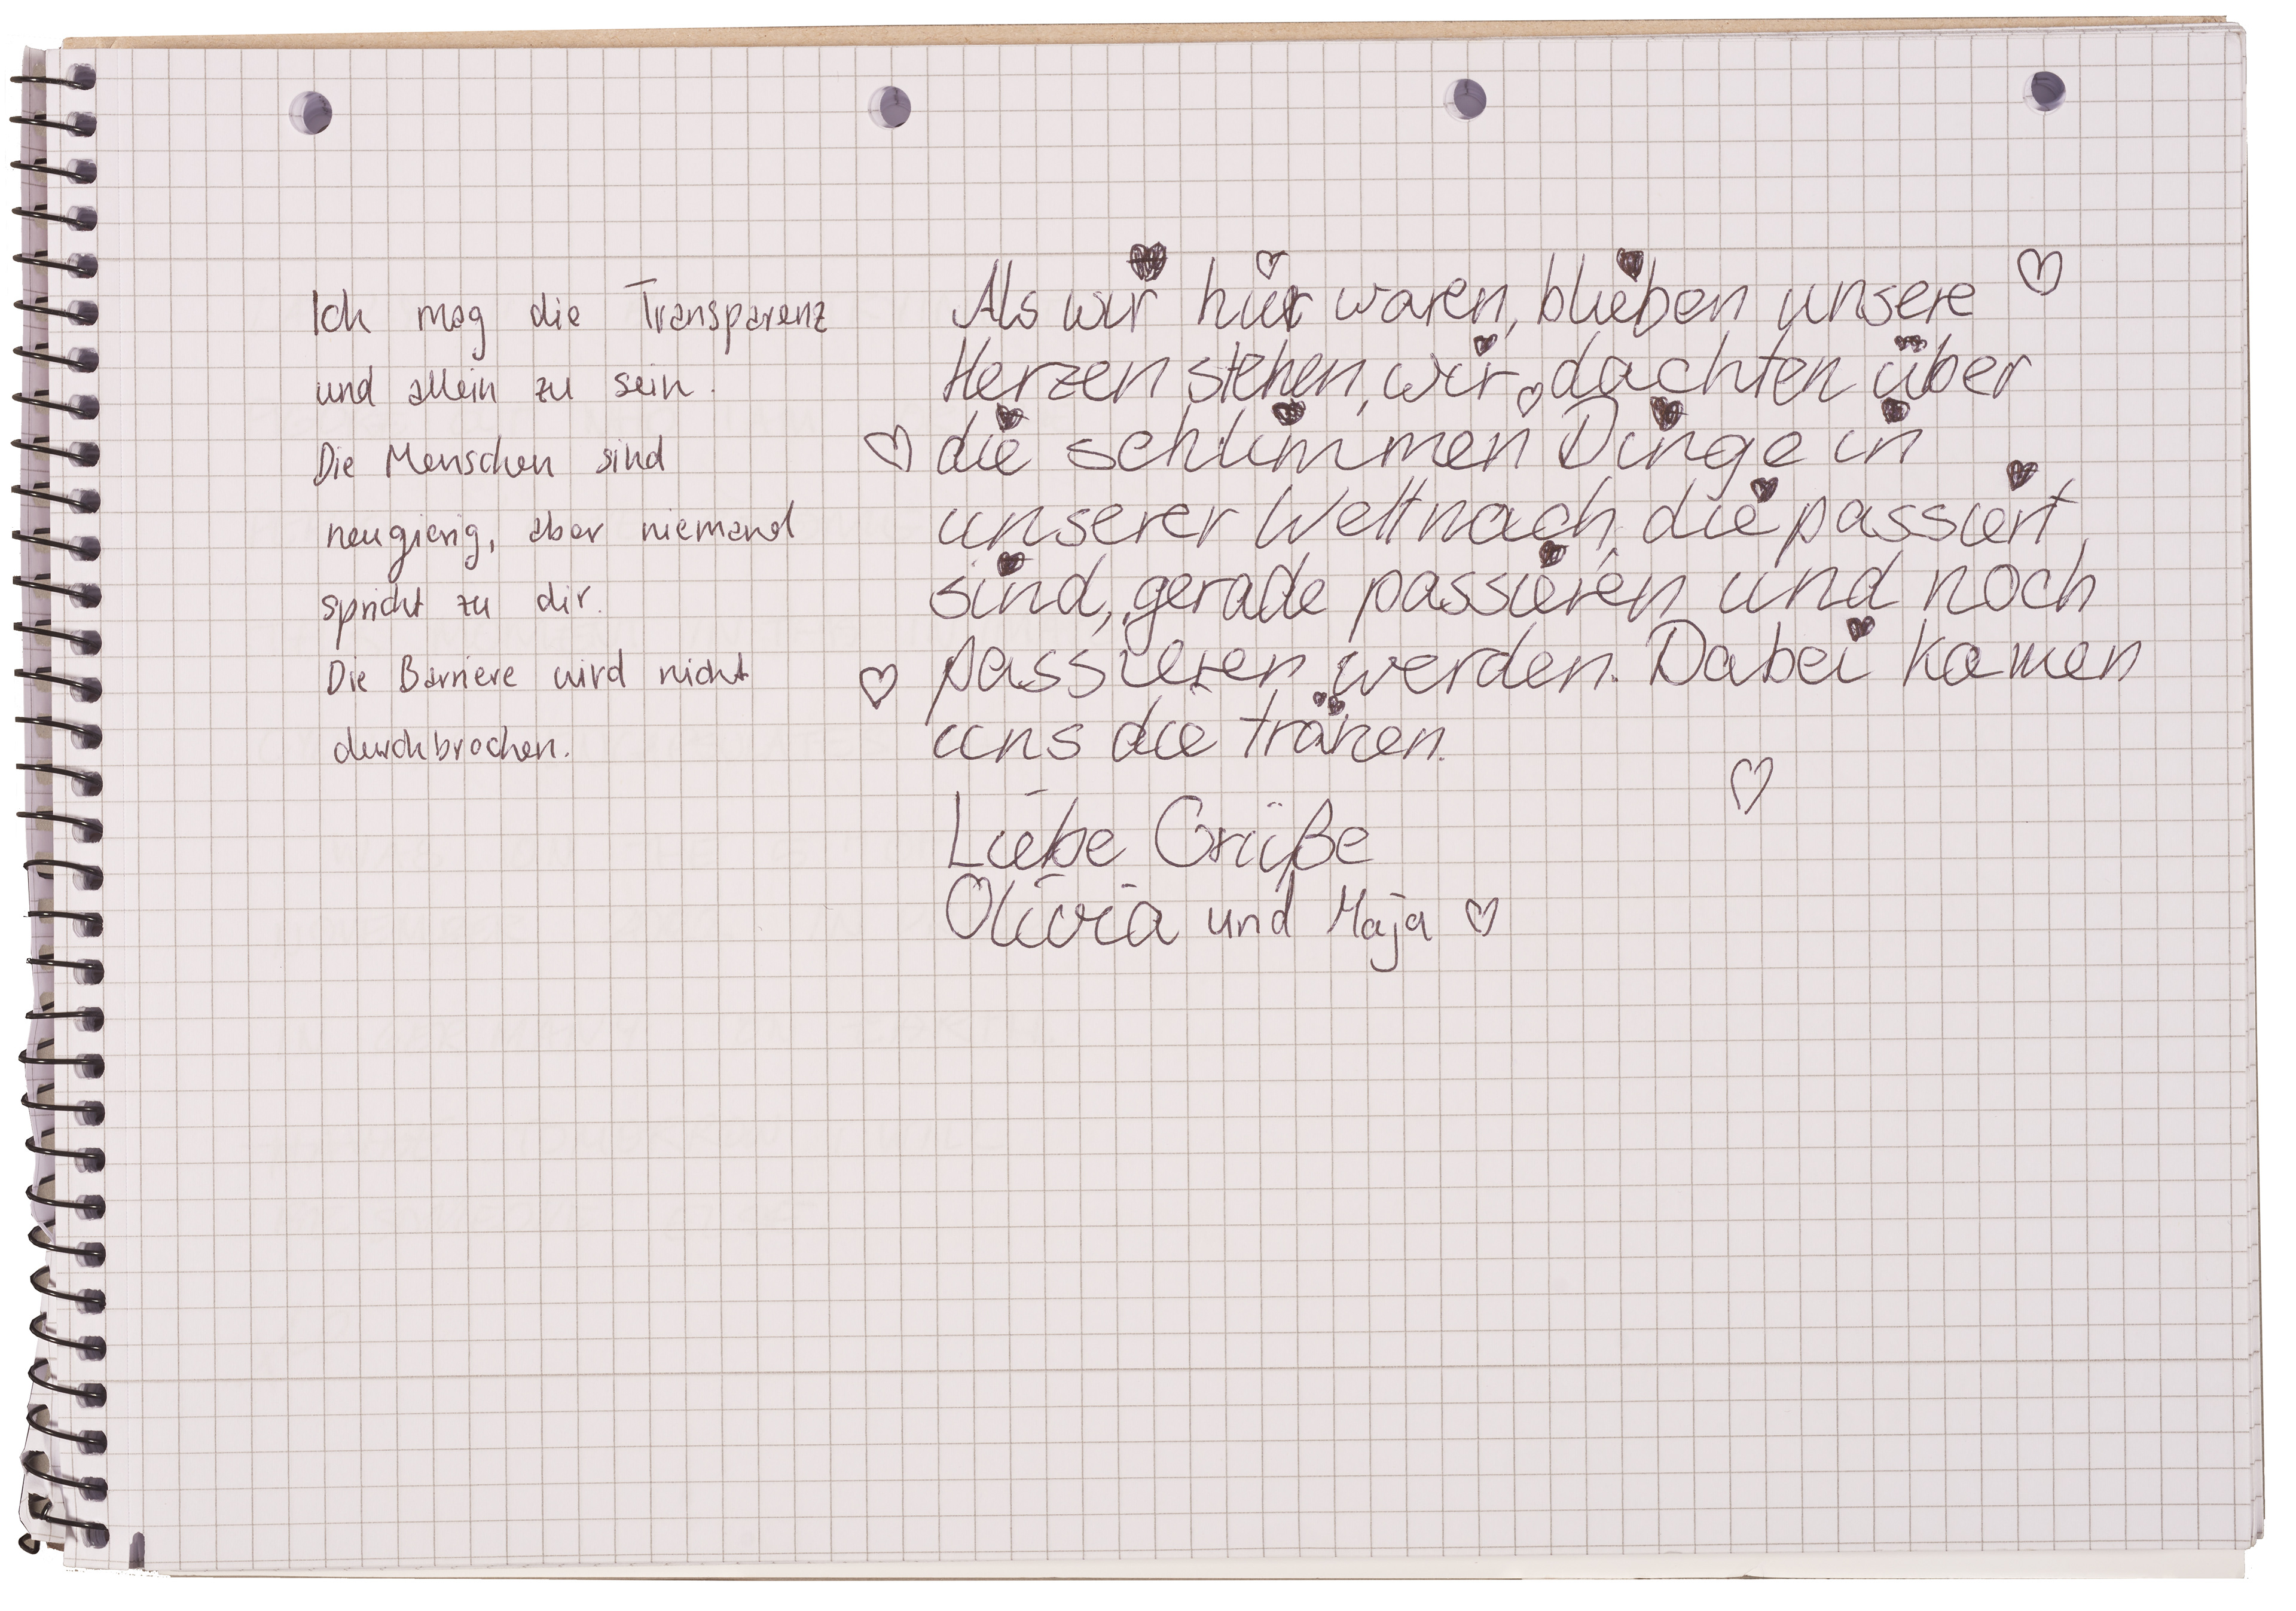 Ich mag die Transparenz
und allein zu sein.
Die Menschen sind
neugierig, aber niemand
spricht zu dir.
Die Barriere wird nicht
durchbrochen.
Als wir hier waren, blieben unsere ♡
Herzen stehen, wir dachten über
♡ die schlimmen Dinge in
unserer Welt nach, die passiert
sind, gerade passieren und noch
♡ passieren werden. Dabei kamen
uns die tränen.
Liebe Grüße
Olivia und Maja ♡